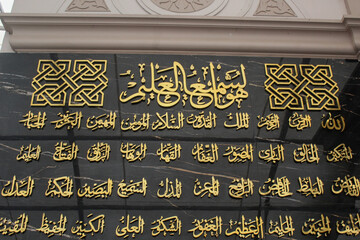 هو السميع العليم
الله الرحمن الرحيم الملك القدوس السلام المؤمن المهيمن العزيز الجبار
المتكبر الخالق البارئ المصور الغفار القهار الوهاب الرزاق الفتاح العليم
القابض الباسط الخافض الرافع المعز المذل السميع البصير الحكم العدل
اللطيف الخبير الحليم العظيم الغفور الشكور العلي الكبير الحفيظ المقيت